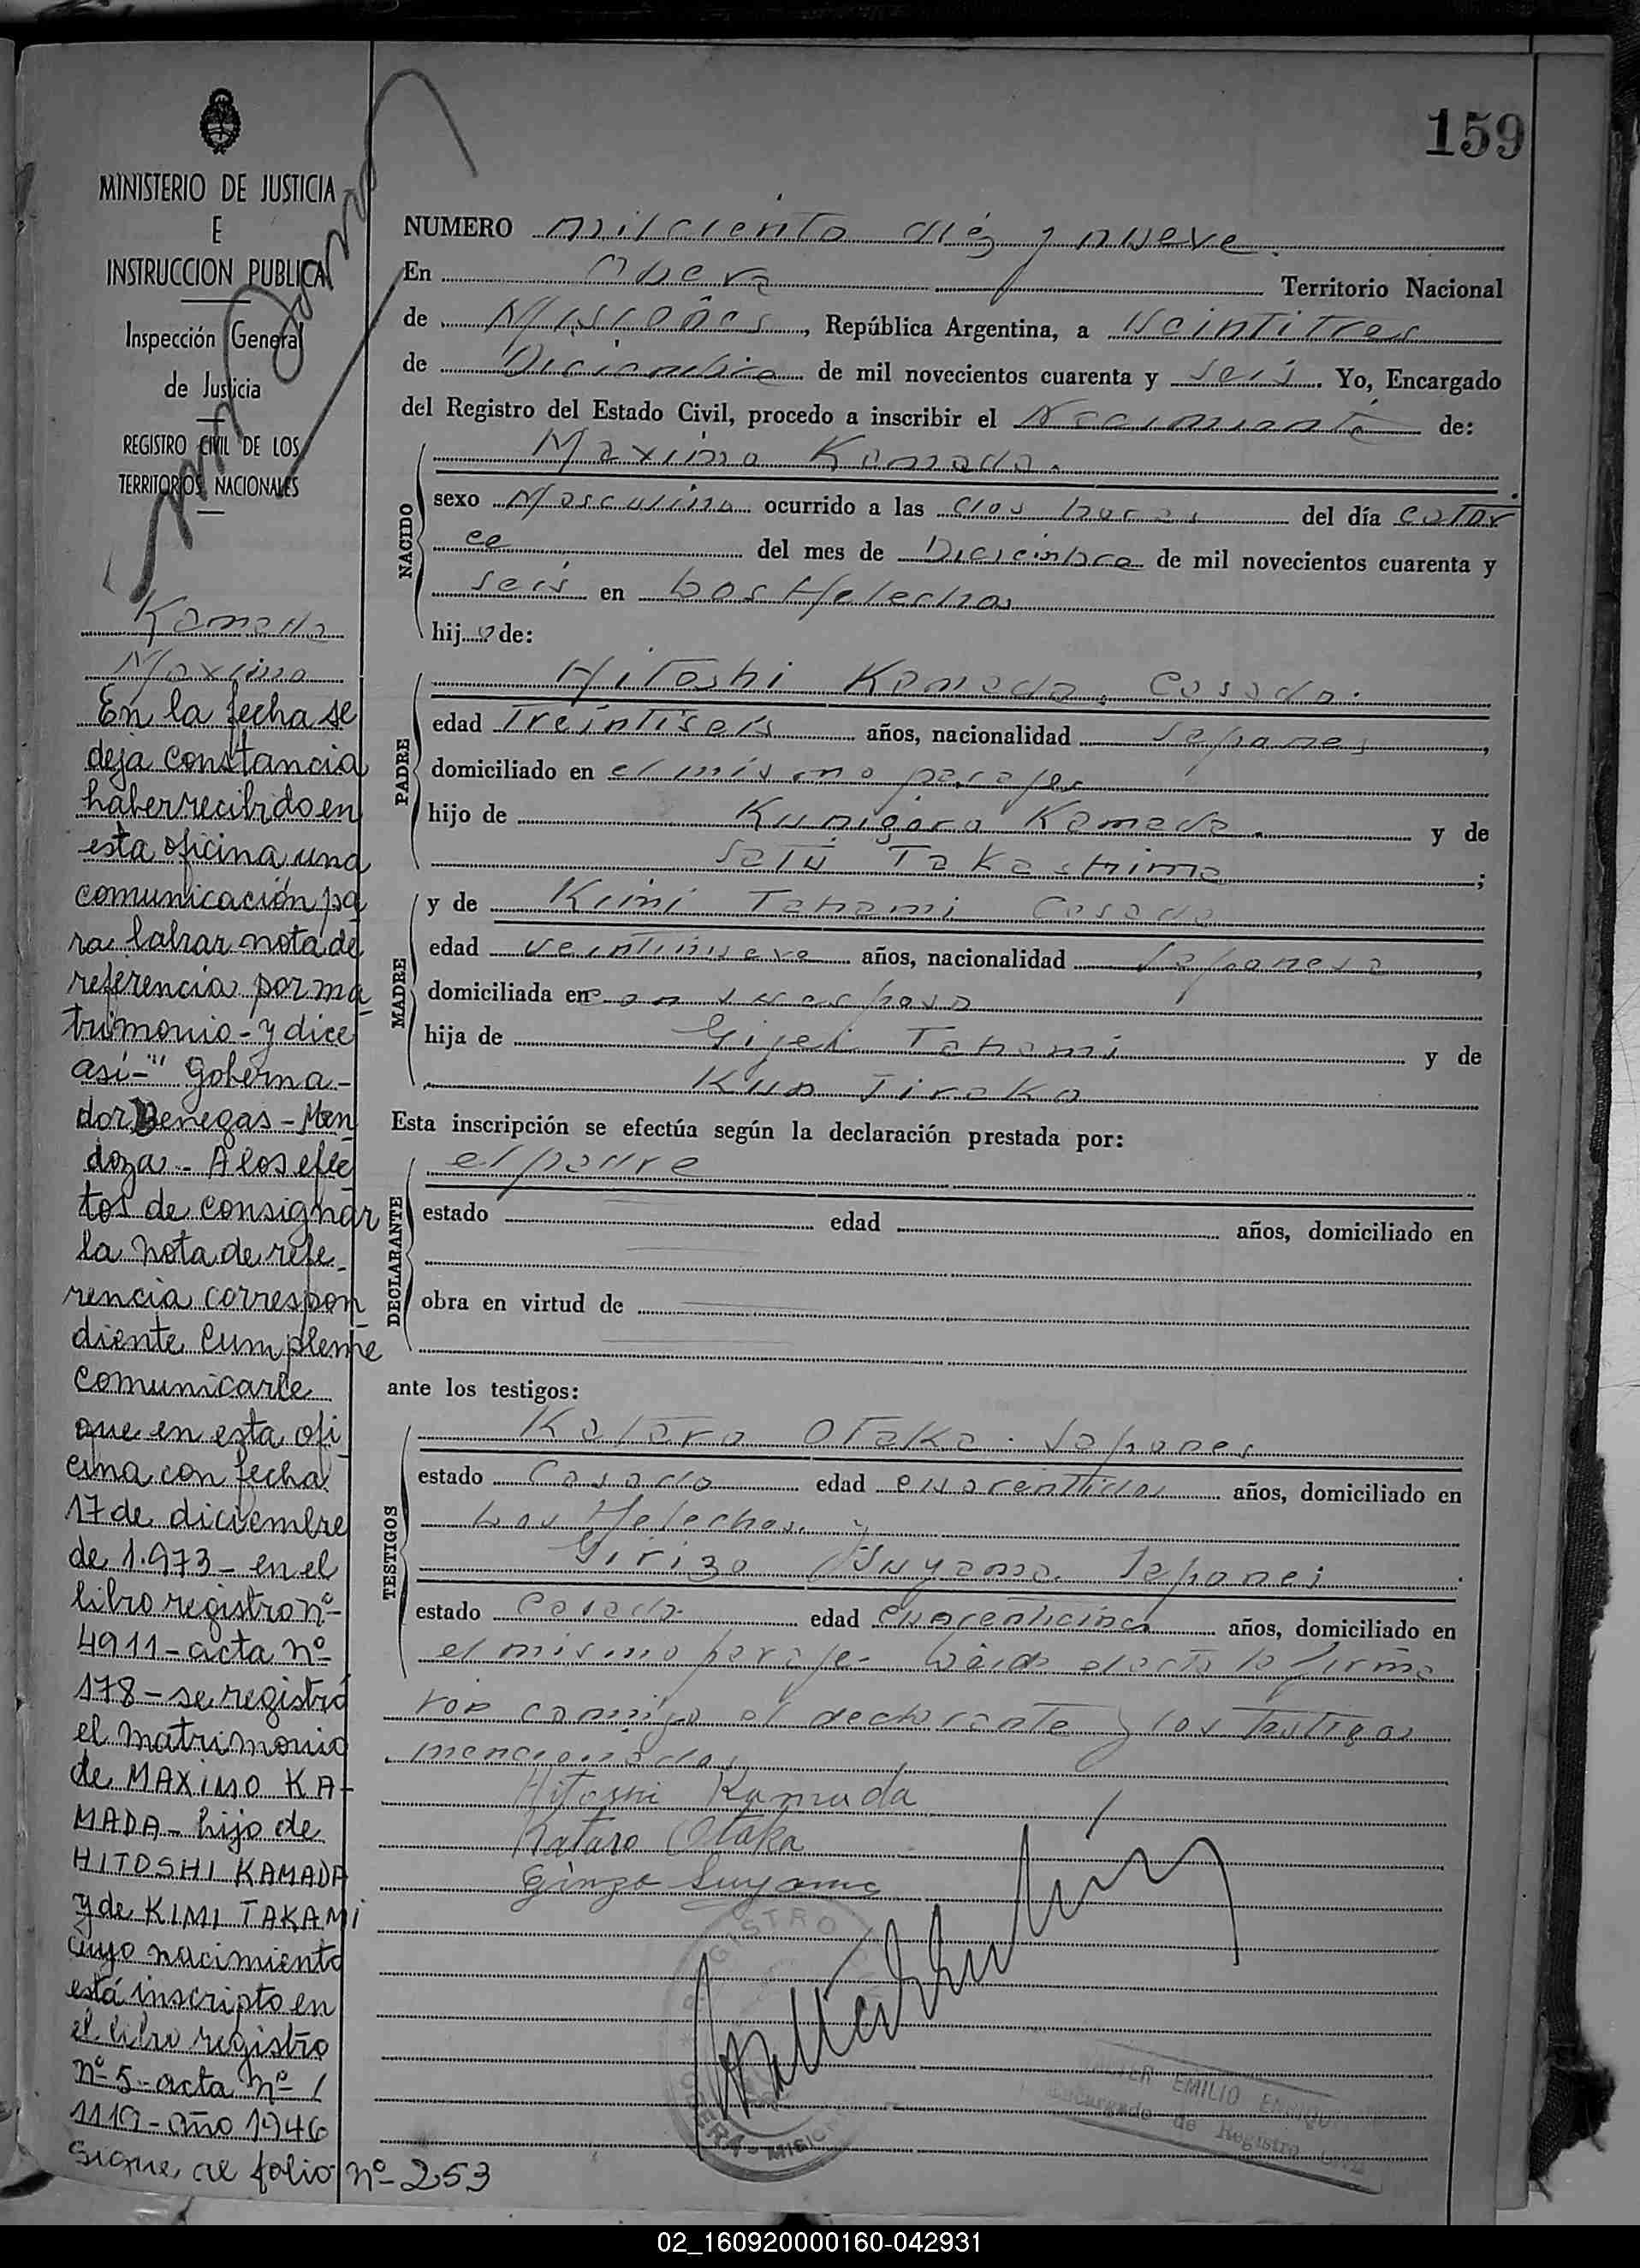 159
MINISTERIO DE JUSTICIA
E
INSTRUCCION PUBLICA
Inspección General
de Justicia
REGISTRO CIVIL DE LOS
TERRITORIOS NACIONALES
Kamada
Maximo
En la fecha se
deja constancia
haber recibido en
esta oficina una
comunicación pa
ra labrar nota de
referencia por ma
trimonio - y dice
así - " Goberna-
dor Benegas - Men
doza - A los efec
tos de consignar
la nota de refe-
rencia correspon
diente cumpleme
comunicarle
que en esta ofi
cina con fecha
17 de diciembre
de 1.973 - en el
libro registro nº
4911 - acta nº
178 - se registró
el matrimonio
de MAXIMO KA-
MADA - hijo de
HITOSHI KAMADA
y de KIMI TAKAMI
cuyo nacimiento
está inscripto en
el libro registro
nº 5 - acta nº
1119 - año 1946
sigue al folio nº 253
NUMERO milciento diez y nueve.
En Obera Territorio Nacional
de Misiones, República Argentina, a Veintitres
de Diciembre de mil novecientos cuarenta y seis. Yo, Encargado
del Registro del Estado Civil, procedo a inscribir el Nacimiento de:
Maximo Kamada.
NACIDO
sexo Masculino ocurrido a las dos horas del día cator
ce del mes de Diciembre de mil novecientos cuarenta y
seis en Los Helechos
hijo de:
PADRE
Hitoshi Kamada. Casado.
edad treintiseis años, nacionalidad Japones,
domiciliado en el mismo paraje
hijo de Kunigoro Kamada. y de
Satu Takashima;
MADRE
y de Kimi Takami Casada
edad veintinueve años, nacionalidad Japonesa,
domiciliada en con su esposo
hija de Takami y de
Kun
Esta inscripción se efectúa según la declaración prestada por:
DECLARANTE
el padre
estado edad años, domiciliado en
obra en virtud de
ante los testigos:
TESTIGOS
Kataro Otaka. Japones
estado Casado edad cuarentidos años, domiciliado en
Los Helechos. y
Suyama. Japones
estado Casado edad cuarenticinco años, domiciliado en
el mismo paraje- Leida el acta la firma
ron conmigo el declarante y los testigos
mencionados
Hitoshi Kamada
Kataro Otaka
Ginzo Suyama
REGISTRO
OBERA - MISIONES
EMILIO
Encargado de Registro Civil
02_160920000160-042931